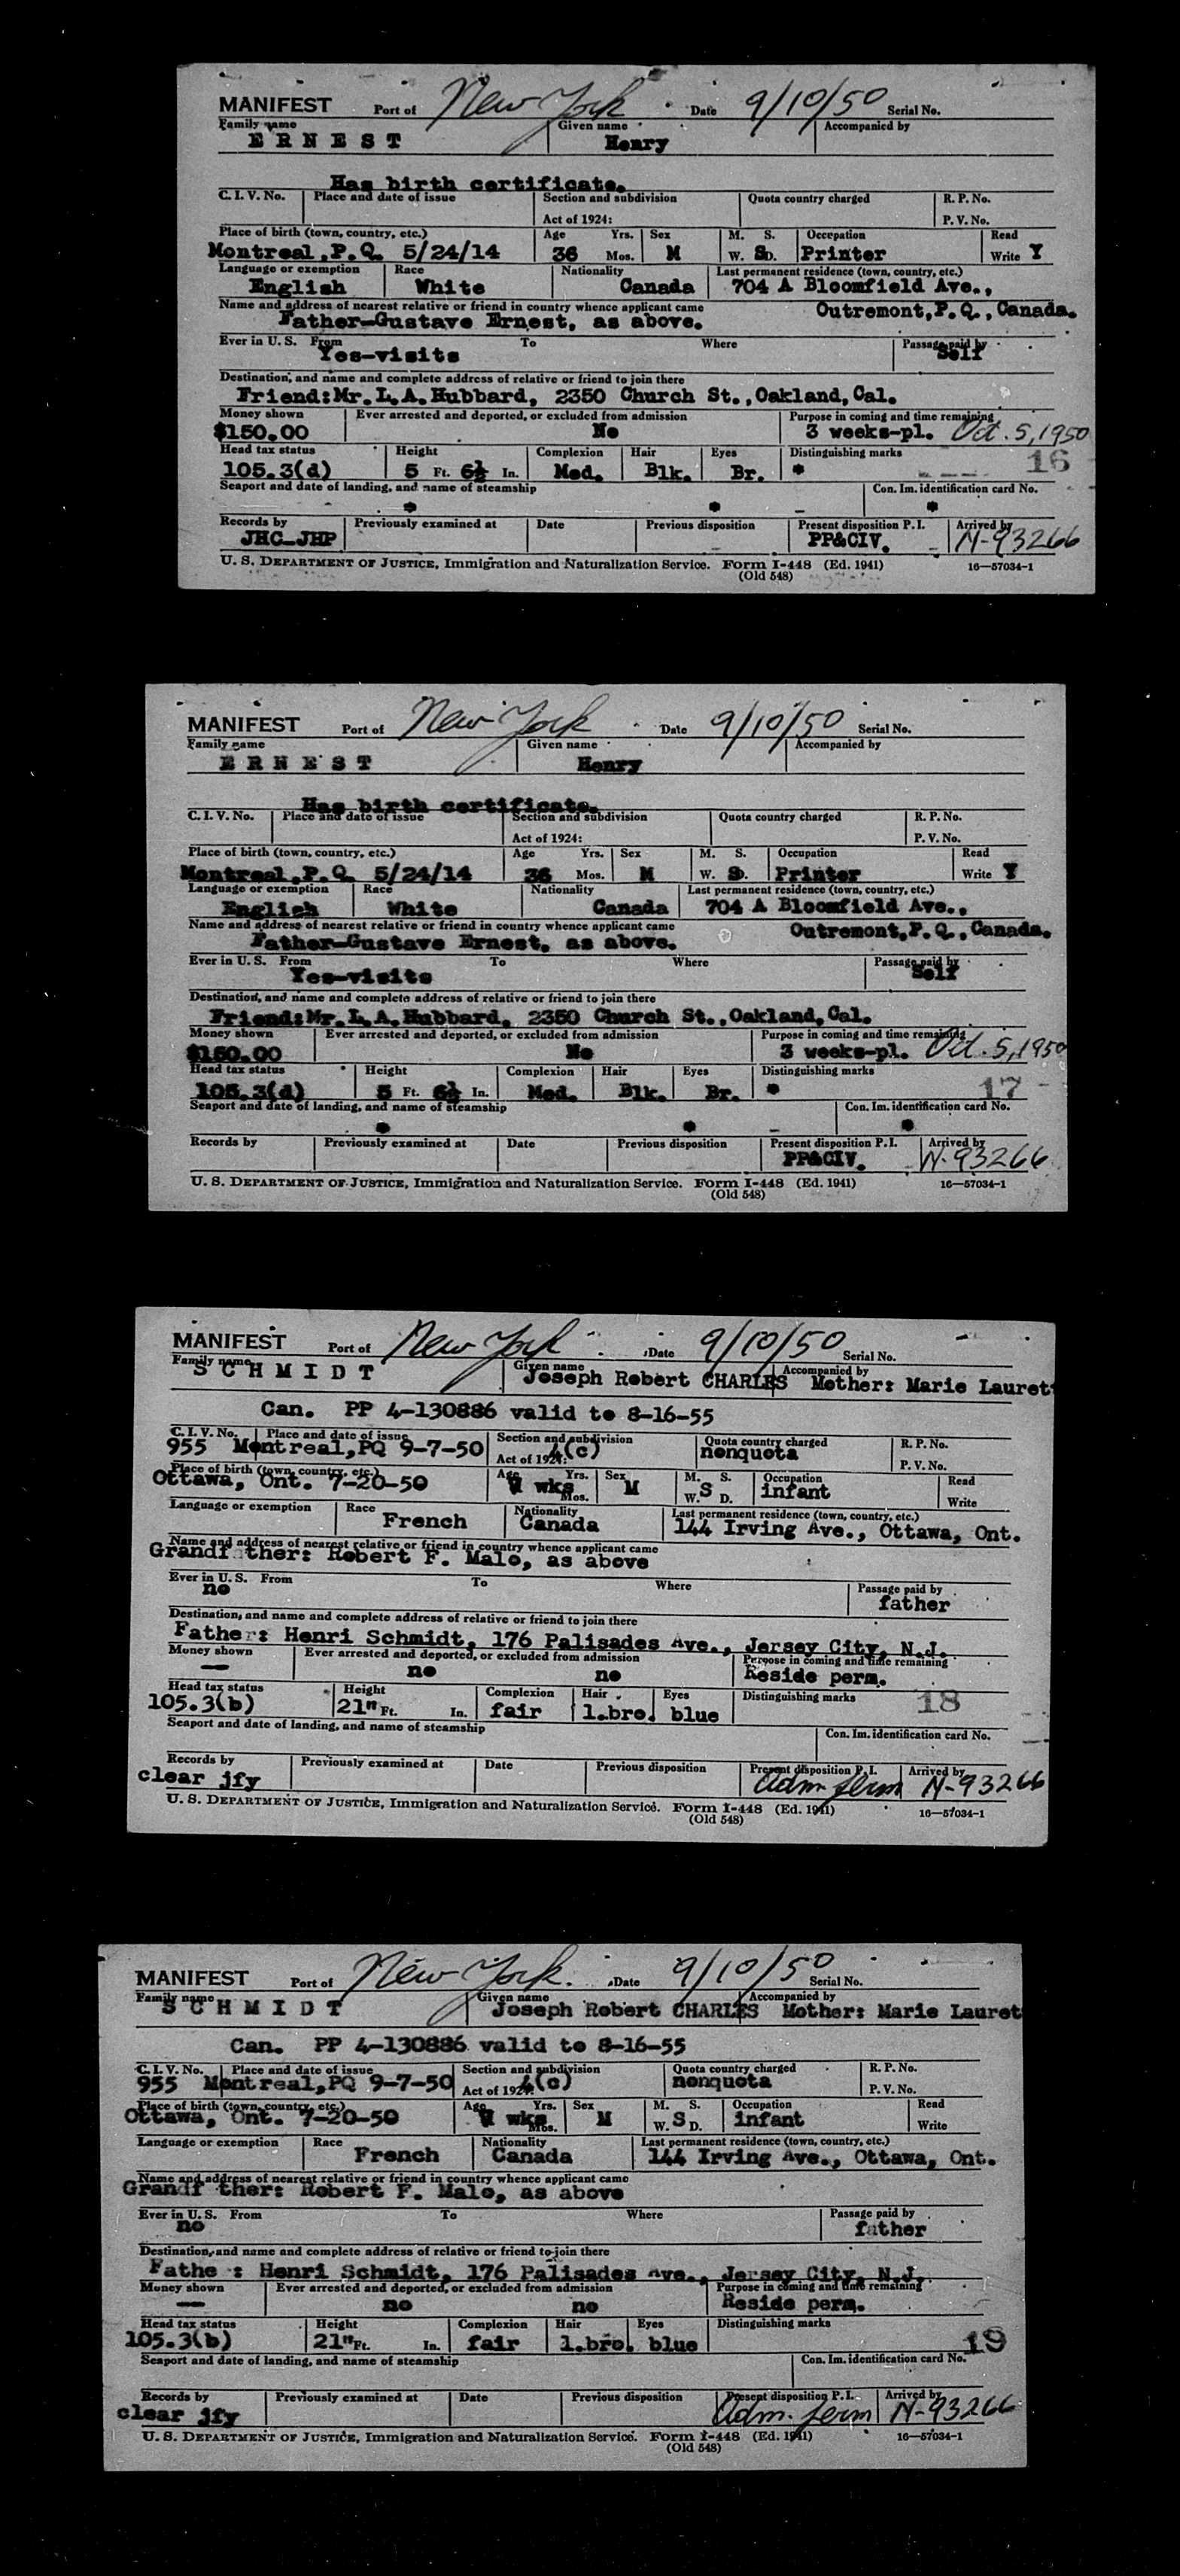 MANIFEST Port of New York Date 9/10/50 Serial No.
Family name Given name Accompanied by
E R N E S T Henry
Has birth certificate.
C. I. V. No. Place and date of issue Section and subdivision Quota country charged R. P. No.
Act of 1924: P. V. No.
Place of birth (town, country, etc.) Age Yrs. Sex M. S. Occupation Read
Montreal,P.Q. 5/24/14 36 Mos. M W. S D. Printer Write Y
Language or exemption Race Nationality Last permanent residence (town, country, etc.)
English White Canada 704 A Bloomfield Ave.,
Name and address of nearest relative or friend in country whence applicant came Outremont,P.Q.,Canada.
Father-Gustave Ernest, as above.
Ever in U. S. From To Where Passage paid by
Yes-visits Self
Destination, and name and complete address of relative or friend to join there
Friend:Mr.L.A.Hubbard, 2350 Church St.,Oakland,Cal.
Money shown Ever arrested and deported, or excluded from admission Purpose in coming and time remaining
$150.00 No 3 weeks-pl. Oct. 5, 1950
Head tax status Height Complexion Hair Eyes Distinguishing marks 16
105.3(d) 5 Ft. 6½ In. Med. Blk. Br.
Seaport and date of landing, and name of steamship Con. Im. identification card No.
Records by Previously examined at Date Previous disposition Present disposition P. I. Arrived by
JHC-JHP PP&CIV. N-93266
U. S. DEPARTMENT OF JUSTICE, Immigration and Naturalization Service. Form I-448 (Ed. 1941) 16—57034-1
(Old 548)
MANIFEST Port of New York Date 9/10/50 Serial No.
Family name Given name Accompanied by
E R N E S T Henry
Has birth certificate.
C. I. V. No. Place and date of issue Section and subdivision Quota country charged R. P. No.
Act of 1924: P. V. No.
Place of birth (town, country, etc.) Age Yrs. Sex M. S. Occupation Read
Montreal,P.Q. 5/24/14 36 Mos. M W. S D. Printer Write Y
Language or exemption Race Nationality Last permanent residence (town, country, etc.)
English White Canada 704 A Bloomfield Ave.,
Name and address of nearest relative or friend in country whence applicant came Outremont,P.Q.,Canada.
Father-Gustave Ernest, as above.
Ever in U. S. From To Where Passage paid by
Yes-visits Self
Destination, and name and complete address of relative or friend to join there
Friend:Mr.L.A.Hubbard, 2350 Church St.,Oakland,Cal.
Money shown Ever arrested and deported, or excluded from admission Purpose in coming and time remaining
$150.00 No 3 weeks-pl. Oct. 5, 1950
Head tax status Height Complexion Hair Eyes Distinguishing marks
105.3(d) 5 Ft. 6½ In. Med. Blk. Br. 17
Seaport and date of landing, and name of steamship Con. Im. identification card No.
Records by Previously examined at Date Previous disposition Present disposition P. I. Arrived by
PP&CIV. N-93266
U. S. DEPARTMENT OF JUSTICE, Immigration and Naturalization Service. Form I-448 (Ed. 1941) 16—57034-1
(Old 548)
MANIFEST Port of New York Date 9/10/50 Serial No.
Family name Given name Accompanied by
S C H M I D T Joseph Robert CHARLES Mother: Marie Lauret
Can. PP 4-130886 valid to 8-16-55
C. I. V. No. Place and date of issue Section and subdivision Quota country charged R. P. No.
955 Montreal,PQ 9-7-50 Act of 1924: 4(c) nonquota P. V. No.
Place of birth (town, country, etc.) Age Yrs. Sex M. S. Occupation Read
Ottawa, Ont. 7-20-50 wks Mos. M W. S D. infant Write
Language or exemption Race Nationality Last permanent residence (town, country, etc.)
French Canada 144 Irving Ave., Ottawa, Ont.
Name and address of nearest relative or friend in country whence applicant came
Grandf ther: Robert F. Malo, as above
Ever in U. S. From To Where Passage paid by
no father
Destination, and name and complete address of relative or friend to join there
Father: Henri Schmidt, 176 Palisades Ave., Jersey City, N.J.
Money shown Ever arrested and deported, or excluded from admission Purpose in coming and time remaining
— no no Reside perm.
Head tax status Height Complexion Hair Eyes Distinguishing marks 18
105.3(b) 21" Ft. In. fair l.bro. blue
Seaport and date of landing, and name of steamship Con. Im. identification card No.
Records by Previously examined at Date Previous disposition Present disposition P. I. Arrived by
clear jfy Adm. perm N-93266
U. S. DEPARTMENT OF JUSTICE, Immigration and Naturalization Service. Form I-448 (Ed. 1941) 16—57034-1
(Old 548)
MANIFEST Port of New York. Date 9/10/50 Serial No.
Family name Given name Accompanied by
S C H M I D T Joseph Robert CHARLES Mother: Marie Lauret
Can. PP 4-130886 valid to 8-16-55
C. I. V. No. Place and date of issue Section and subdivision Quota country charged R. P. No.
955 Montreal,PQ 9-7-50 Act of 1924: 4(c) nonquota P. V. No.
Place of birth (town, country, etc.) Age Yrs. Sex M. S. Occupation Read
Ottawa, Ont. 7-20-50 wks Mos. M W. S D. infant Write
Language or exemption Race Nationality Last permanent residence (town, country, etc.)
French Canada 144 Irving Ave., Ottawa, Ont.
Name and address of nearest relative or friend in country whence applicant came
Grandf ther: Robert F. Malo, as above
Ever in U. S. From To Where Passage paid by
no father
Destination, and name and complete address of relative or friend to join there
Fathe : Henri Schmidt, 176 Palisades Ave., Jersey City, N.J.
Money shown Ever arrested and deported, or excluded from admission Purpose in coming and time remaining
— no no Reside perm.
Head tax status Height Complexion Hair Eyes Distinguishing marks
105.3(b) 21" Ft. In. fair l.bro. blue 19
Seaport and date of landing, and name of steamship Con. Im. identification card No.
Records by Previously examined at Date Previous disposition Present disposition P. I. Arrived by
clear jfy Adm. perm N-93266
U. S. DEPARTMENT OF JUSTICE, Immigration and Naturalization Service. Form I-448 (Ed. 1941) 16—57034-1
(Old 548)